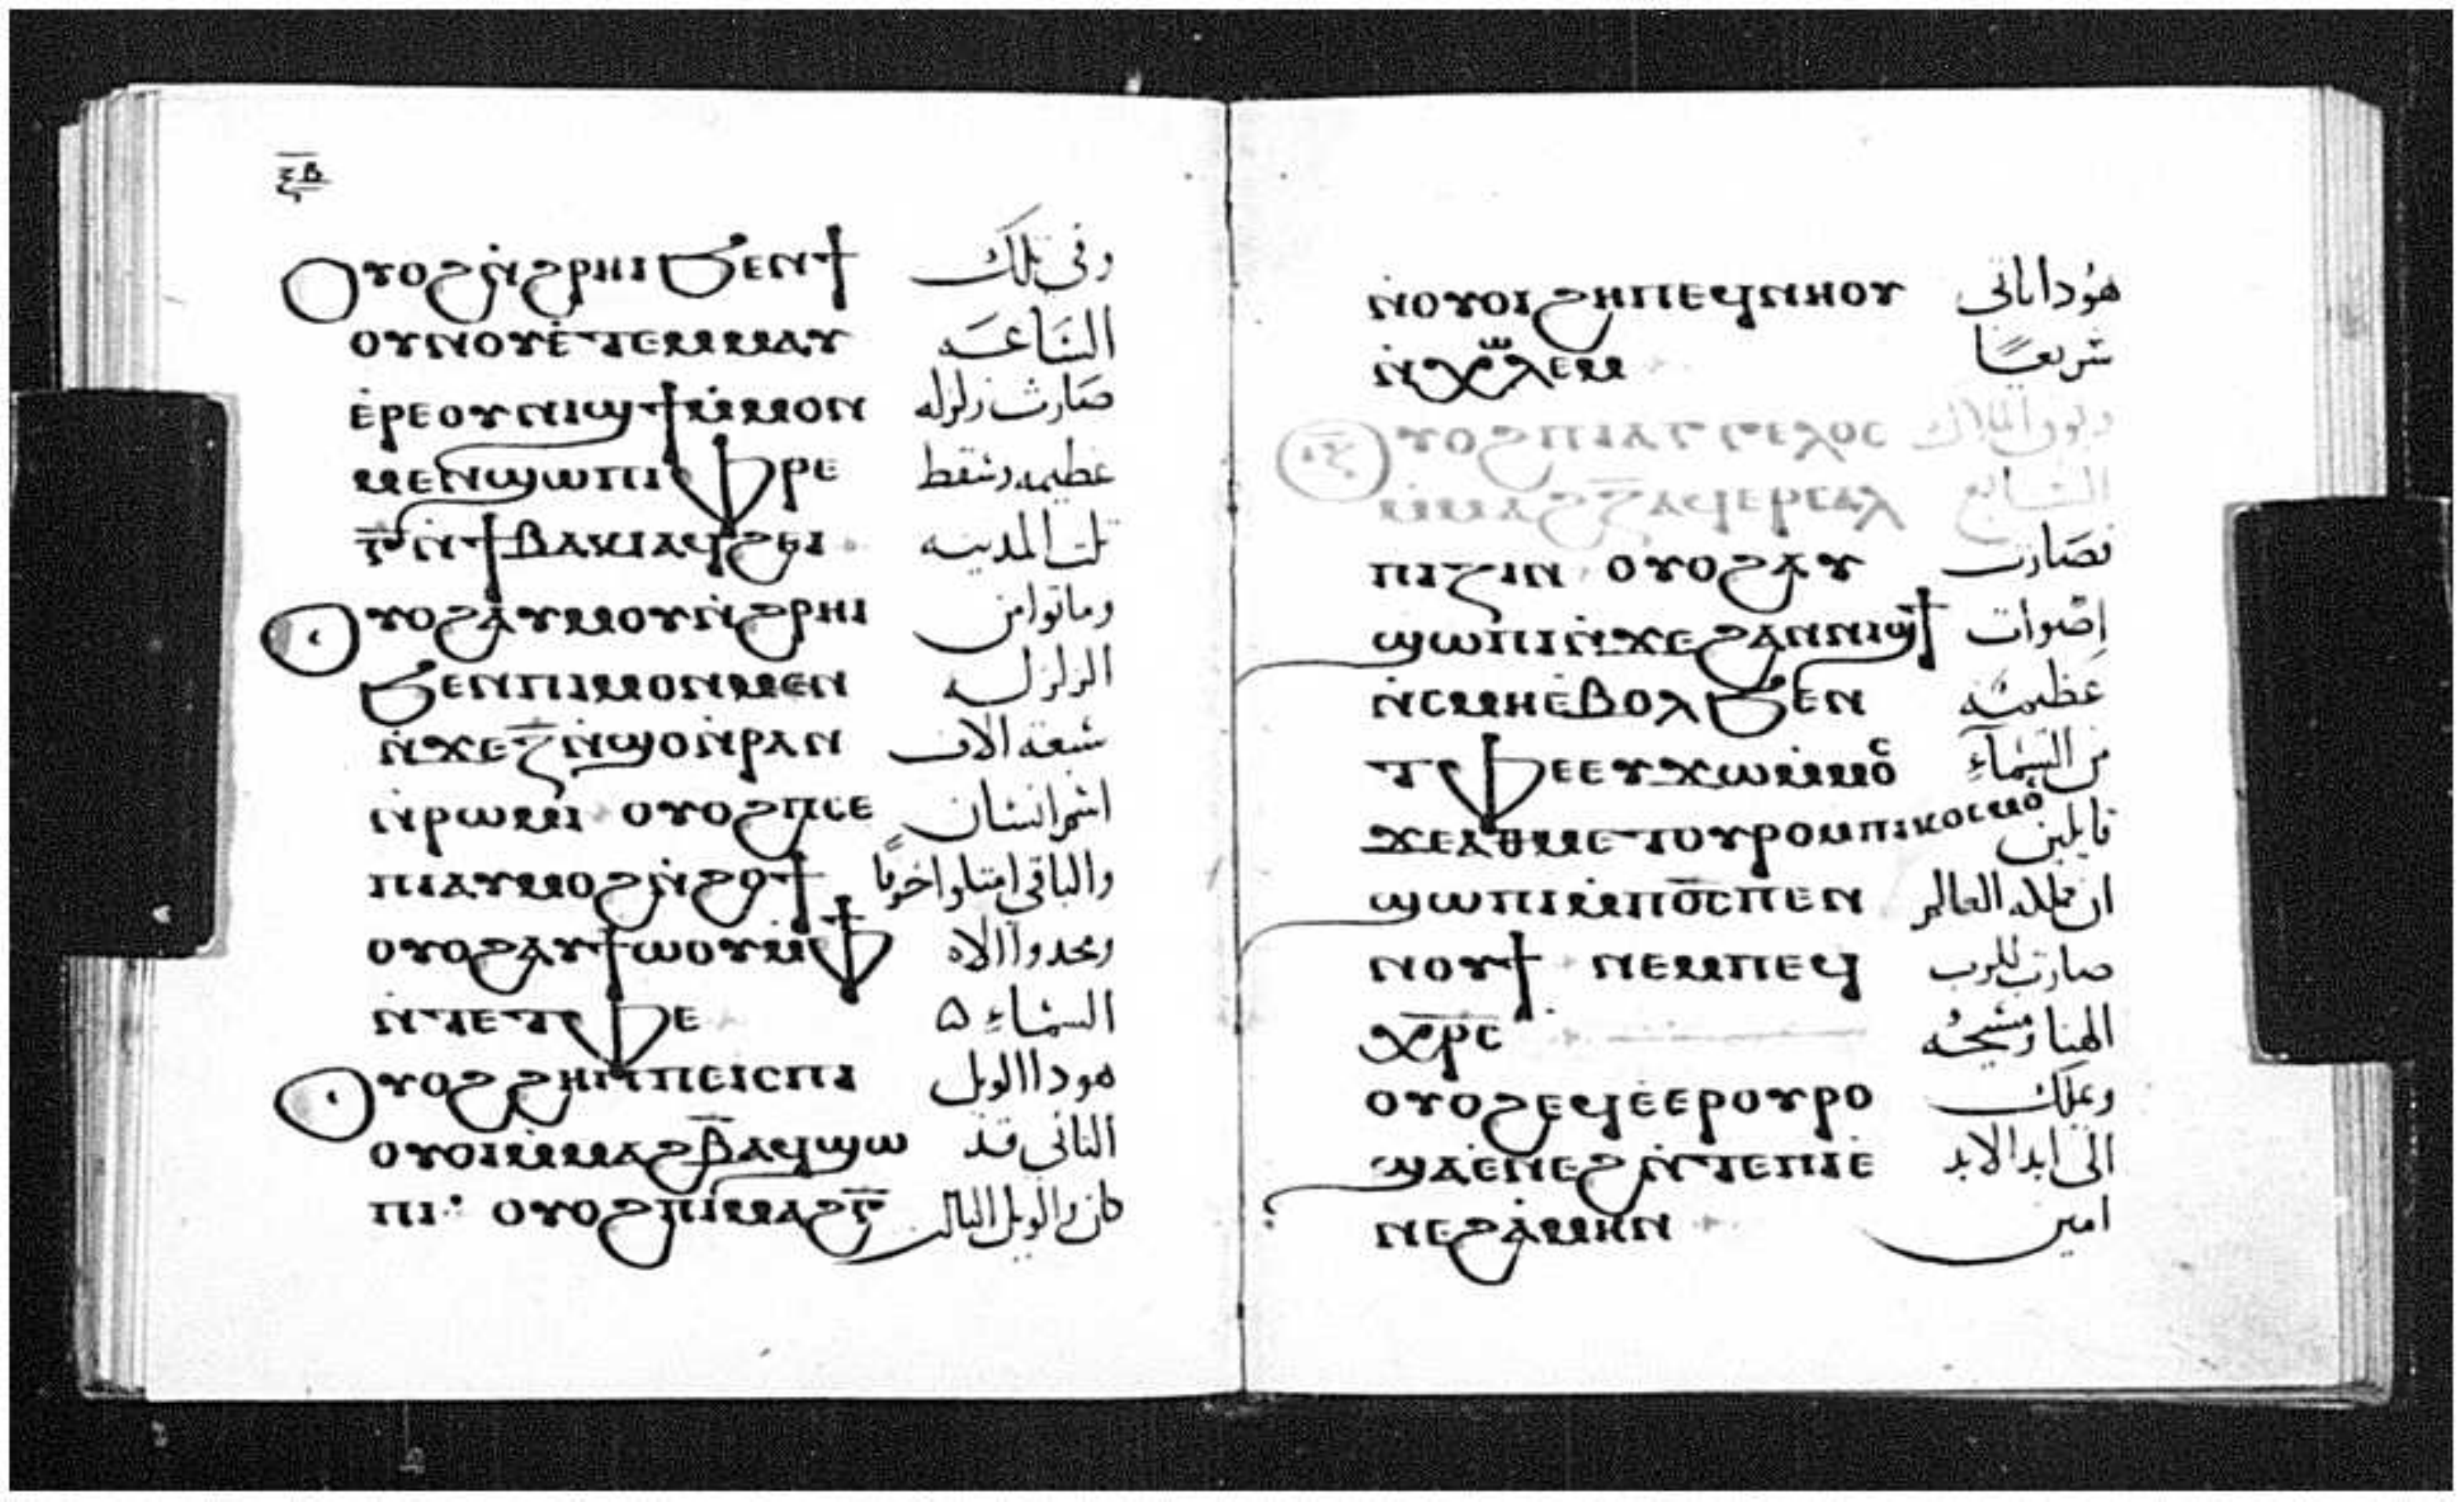 ⲝⲃ
ⲟⲩⲟϩ ⲛ̀ϩⲣⲏⲓ ϧⲉⲛϯ وفى تلك
ⲟⲩⲛⲟⲩ ⲉ̀ⲧⲉⲙⲙⲁⲩ الساعه
ⲉ̀ⲣⲉⲟⲩⲛⲓϣϯ ⲙ̀ⲙⲟⲛ صارت زلزله
ⲙⲉⲛϣⲱⲡⲓ ⲫⲣⲉ عظيمه وسقط
ⲅ̅ ⲛ̀ϯⲃⲁⲕⲓ ⲁϥϩⲉⲓ تلت المدينه
ⲟⲩⲟϩ ⲁ̀ⲩⲙⲟⲩ ⲛ̀ϩⲣⲏⲓ وماتوا من
ϧⲉⲛⲡⲓⲙⲟⲛⲙⲉⲛ الزلزله
ⲛ̀ϫⲉ ⲍ̅ ⲛ̀ϣⲟ ⲛ̀ⲣⲁⲛ سبعه الاف
ⲛ̀ⲣⲱⲙⲓ ⲟⲩⲟϩ ⲡⲥⲉ اسم انسان
ⲡⲓ ⲁⲩⲙⲟϩ ⲛ̀ϩⲟϯ والباقى امتلوا خوفا
ⲟⲩⲟϩ ⲁⲩϯⲱⲟⲩ ⲙ̀ⲫϯ ومجدوا الاه
ⲛ̀ⲧⲉⲧⲫⲉ السماء ه
ⲟⲩⲟϩ ϩⲏⲡⲡⲉ ⲓⲥ ⲡⲓ هودا الويل
ⲟⲩⲟⲓ ⲙ̀ⲙⲁϩ ⲃ̅ ⲁϥϣⲱ التانى قد
ⲡⲓ: ⲟⲩⲟϩ ⲡⲓⲙⲁϩ ⲅ̅ كان والويل التالت
ⲛ̀ⲟⲩⲟⲓ ϩⲏⲡⲡⲉ ϥⲛⲏⲟⲩ هودا ياتى
ⲛ̀ⲭⲱⲗⲉⲙ سريعًا
ⲟⲩⲟϩ ⲡⲓⲁⲅⲅⲉⲗⲟⲥ وبوق الملاك
ⲙ̀ⲙⲁϩ ⲍ̅ ⲁϥⲉⲣⲥⲁⲗ السابع
ⲡⲓⲍⲓⲛ ⲟⲩⲟϩ ⲁ̀ⲩ فصارت
ϣⲱⲡⲓ ⲛ̀ϫⲉ ϩⲁⲛⲛⲓϣϯ اصوات
ⲛ̀ⲥⲙⲏ ⲉ̀ⲃⲟⲗ ϧⲉⲛ عظيمه
ⲧⲫⲉ ⲉⲩϫⲱⲙ̀ⲙⲟⲥ من السماء
ϫⲉ ⲁ̀ⲑⲙⲉⲧⲟⲩⲣⲟ ⲙⲡⲓⲕⲟⲥⲙⲟ قايلين
ϣⲱⲡⲓ ⲙ̀ⲡⲟ̅ⲥ̅ ⲡⲉⲛ ان مملكه العالم
ⲛⲟⲩϯ ⲛⲉⲙⲡⲉϥ صارت للرب
ⲭⲣ̅ⲥ̅ الهنا ومسيحه
ⲟⲩⲟϩ ⲉϥⲉ̀ⲉⲣⲟⲩⲣⲟ ويملك
ϣⲁⲉ̀ⲛⲉϩ ⲛ̀ⲧⲉⲡⲓⲉ̀ الى ابد الابد
ⲛⲉϩ ⲁ̀ⲙⲏⲛ امين